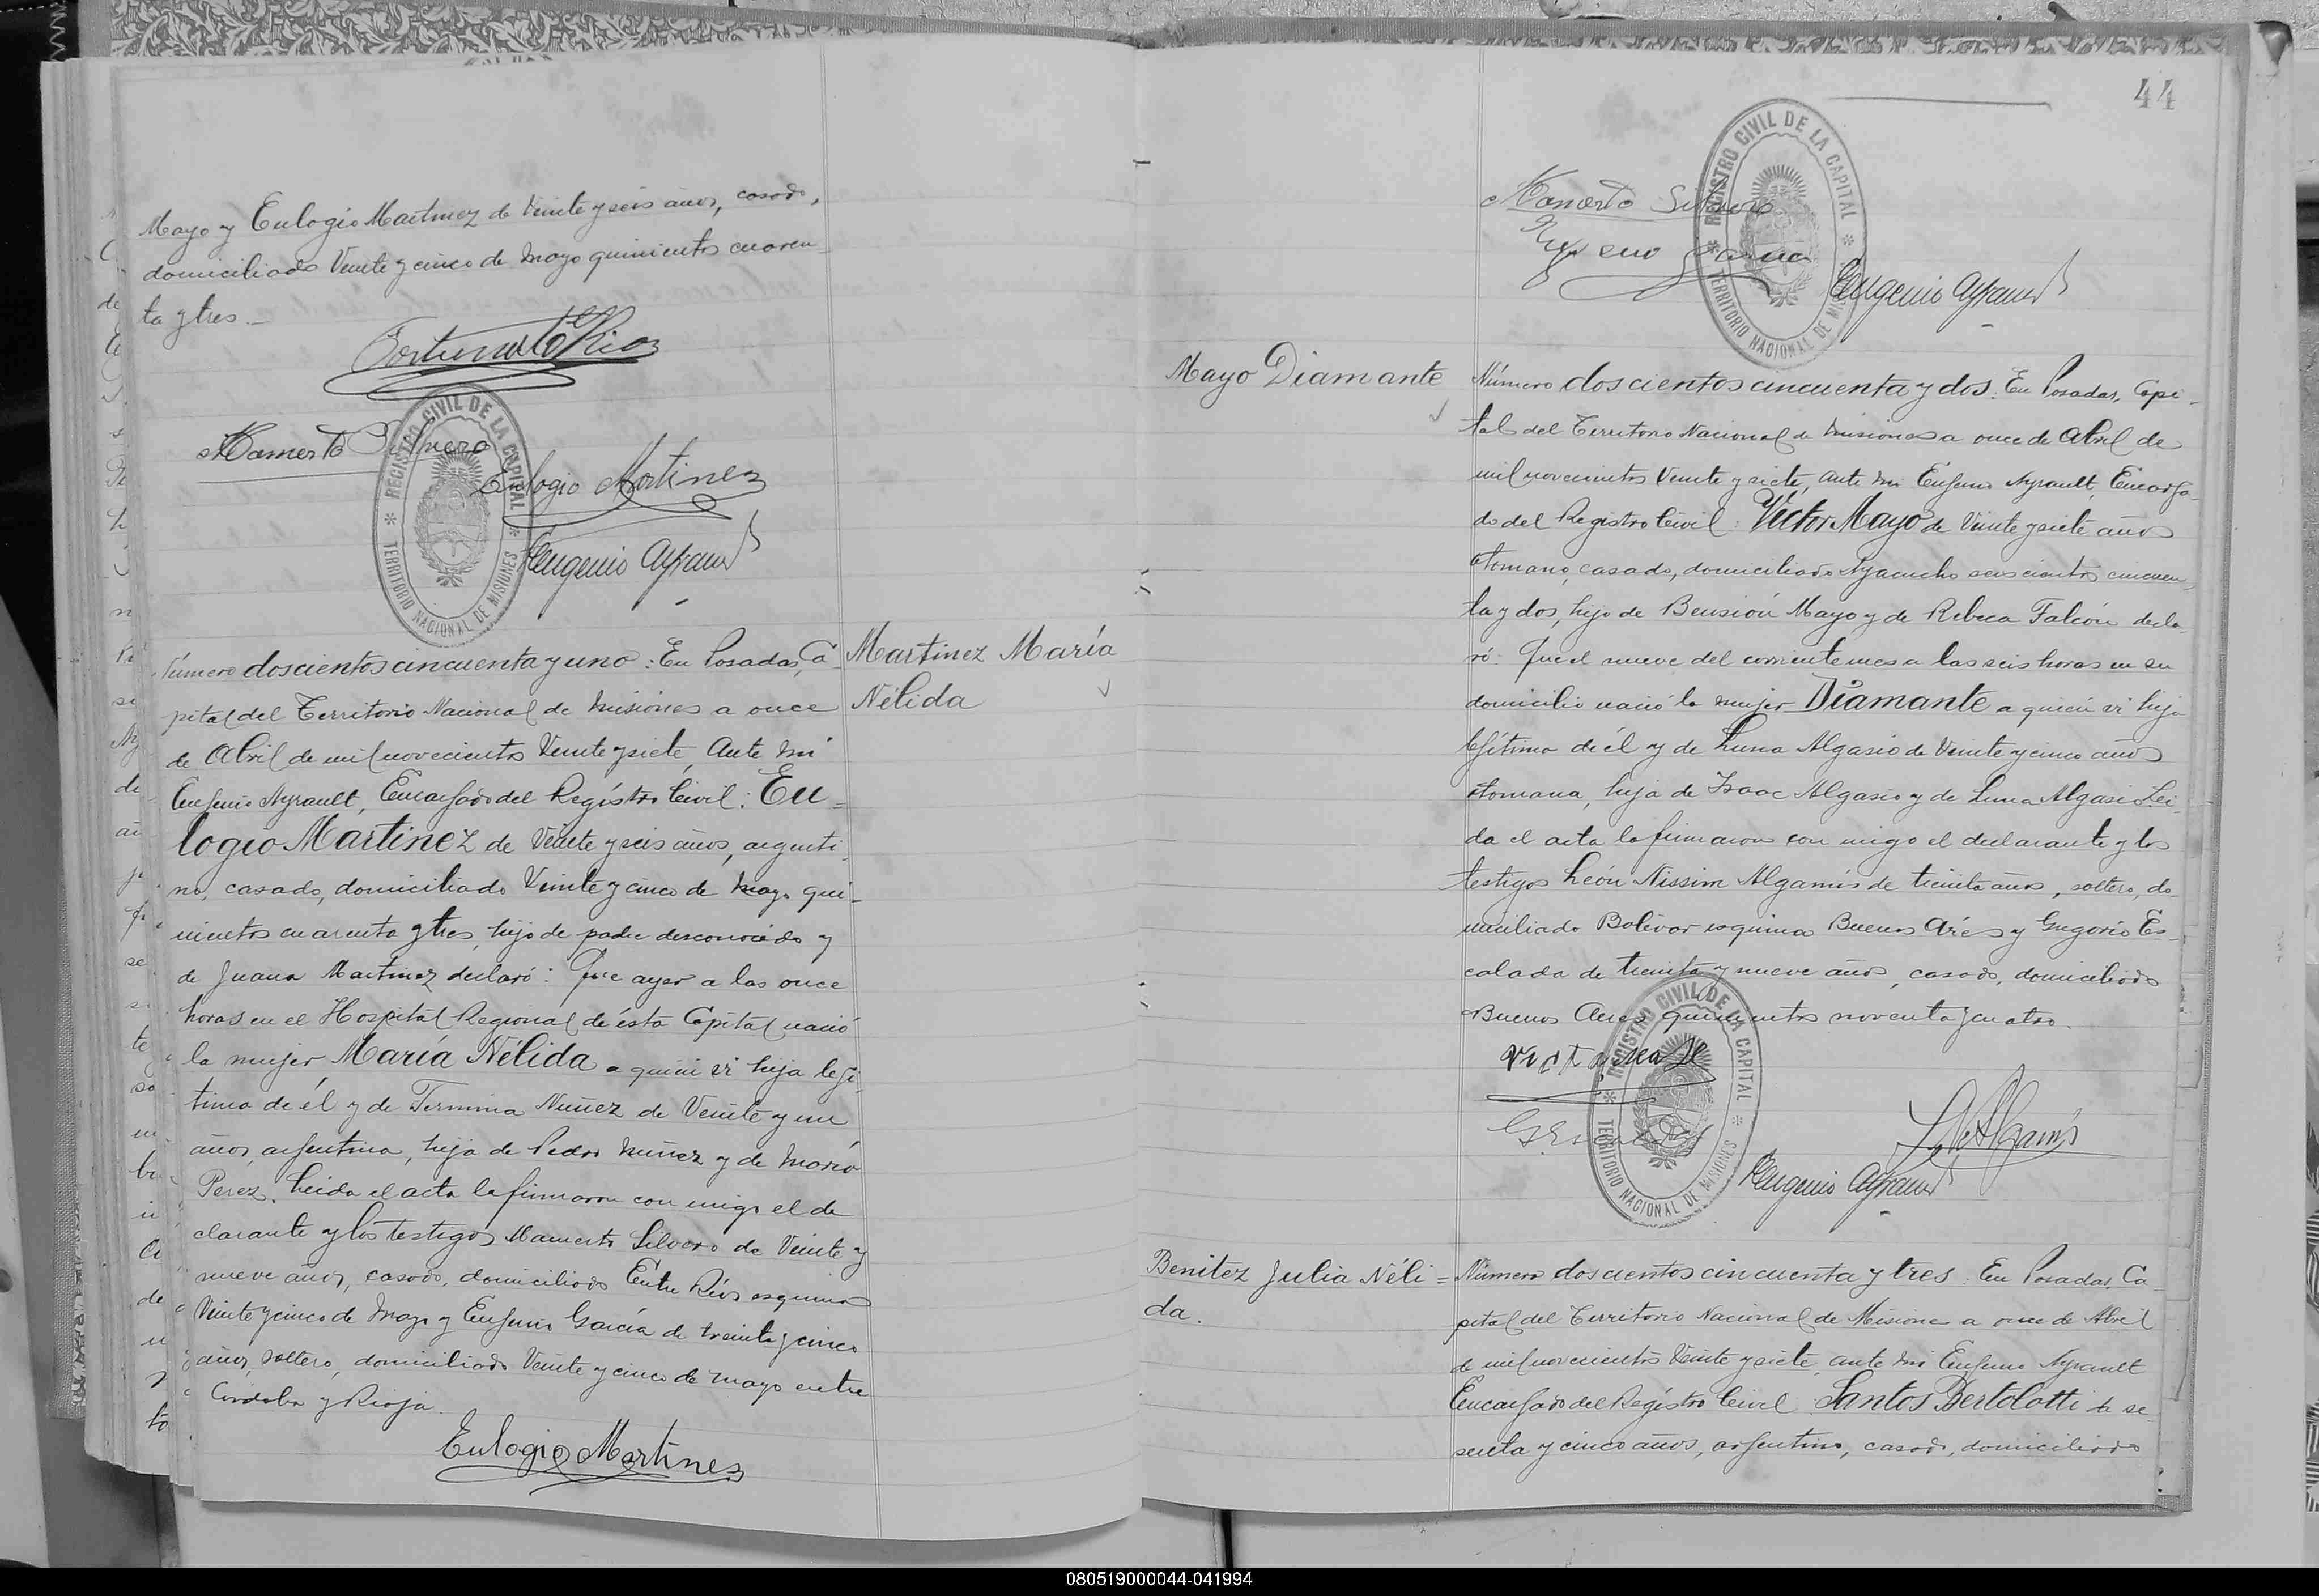 Mayo y Eulogio Martinez de Veinte y seis años, casado,
domiciliado Veinte y cinco de Mayo quinientos cuaren
ta y tres.—
Fortunato Rios
Mamerto Silvero
Eulogio Martinez
Eugenio Ayrault
REGISTRO CIVIL DE LA CAPITAL
TERRITORIO NACIONAL DE MISIONES
Número doscientos cincuenta y uno: En Posadas, Ca
pital del Territorio Nacional de Misiones a once
de Abril de mil novecientos Veinte y siete, Ante mi
Eugenio Ayrault, Encargado del Registro Civil: Eu=
logio Martinez de Veinte y seis años, argenti
no, casado, domiciliado Veinte y cinco de Mayo qui-
nientos cuarenta y tres, hijo de padre desconocido y
de Juana Martinez declaró: Que ayer a las once
horas en el Hospital Regional de ésta Capital nació
la mujer María Nélida a quien vi hija legí
tima de él y de Termina Nuñez de Veinte y un
años, argentina, hija de Pedro Nuñez y de María
Perez. Leida el acta la firmaron con migo el de
clarante y los testigos Mamerto Silvero de Veinte y
nueve años, casado, domiciliado Entre Ríos esquina
Veinte y cinco de Mayo y Eugenio García de treinta y cinco
años, soltero, domiciliado Veinte y cinco de Mayo entre
Córdoba y Rioja.
Eulogio Martinez
Martinez María
Nélida
44
Mamerto Silvero
REGISTRO CIVIL DE LA CAPITAL
TERRITORIO NACIONAL DE MISIONES
Eugenio Ayrault
Mayo Diamante
Número doscientos cincuenta y dos: En Posadas, Capi-
tal del Territorio Nacional de Misiones a once de Abril de
mil novecientos Veinte y siete, ante mi Eugenio Ayrault, Encarga-
do del Registro Civil: Víctor Mayo de Veinte y siete años
otomano, casado, domiciliado Ayacucho seiscientos cincuen
ta y dos, hijo de Bensión Mayo y de Rebeca Falcón decla
ró: Que el nueve del corriente mes a las seis horas en su
domicilio nació la mujer Diamante a quien vi hija
legítima de él y de Luna Algasio de Veinte y cinco años
otomana, hija de Isaac Algasio y de Luna Algasi. Lei
da el acta la firmaron con migo el declarante y los
testigos León Nissim Algamis de treinta años, soltero, do
miciliado Bolivar esquina Buenos Aires y Gregorio Es-
calada de treinta y nueve años, casado, domiciliado
Buenos Aires quinientos noventa y cuatro.
REGISTRO CIVIL DE LA CAPITAL
TERRITORIO NACIONAL DE MISIONES
Eugenio Ayrault
Benitez Julia Néli=
da.
Número doscientos cincuenta y tres: En Posadas, Ca
pital del Territorio Nacional de Misiones a once de Abril
de mil novecientos Veinte y siete, ante mi Eugenio Ayrault
Encargado del Registro Civil Santos Bertolotti de se
senta y cinco años, argentino, casado, domiciliado
080519000044-041994